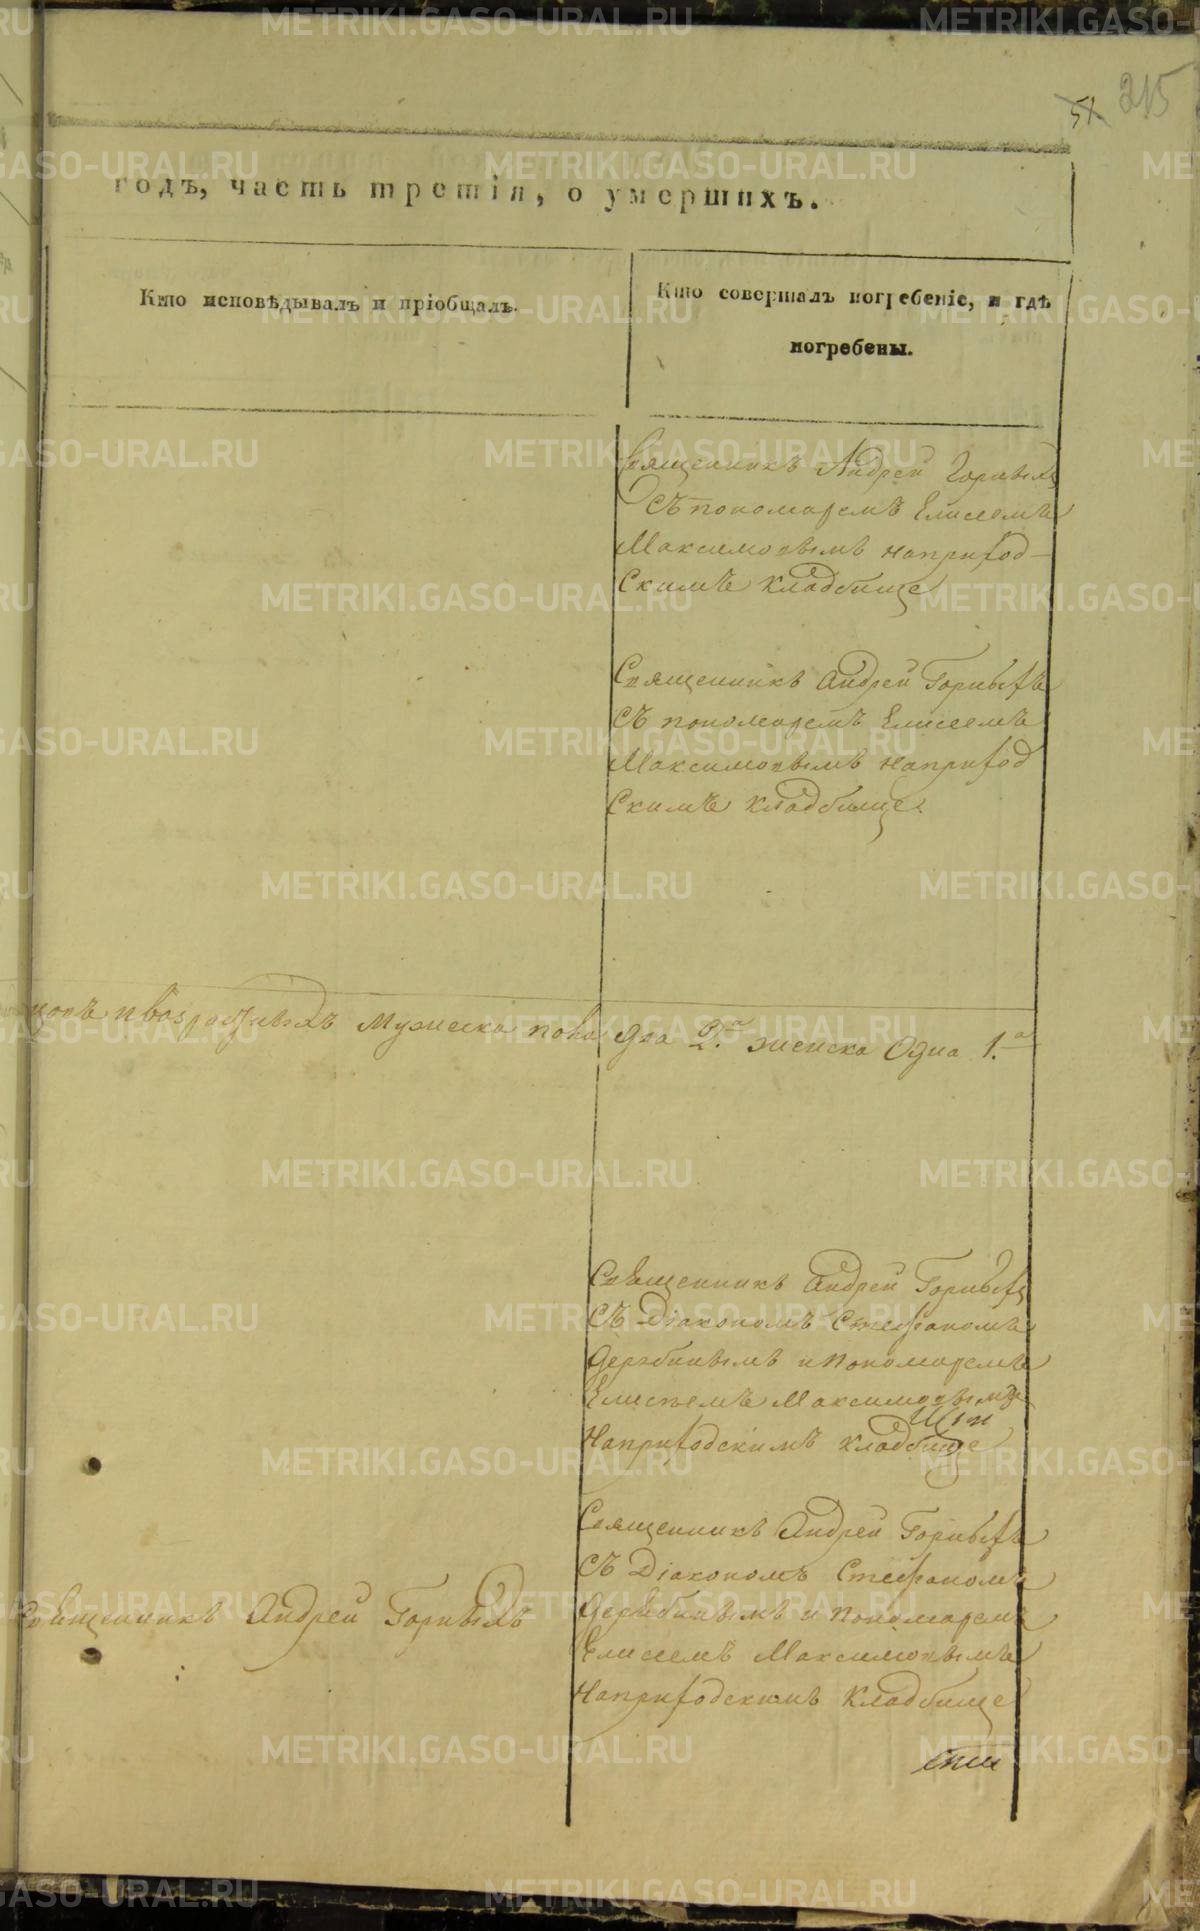 51. 215
годъ, часть третія, о умершихъ.
Кто исповѣдывалъ и пріобщалъ.
Кто совершалъ погребеніе, и гдѣ
погребены.
Священникъ Андрей Горныхъ
съ пономаремъ Елисеемъ
Максимовымъ наприход-
скимъ кладбище
Священникъ Андрей Горныхъ
съ пономаремъ Елисеемъ
Максимовымъ наприход
скимъ кладбище.
и возрастныхъ Мужеска пола два 2.а женска Одна 1.а
Свѣщенникъ Андрей Горныхъ
съ Діакономъ Стефаномъ
Дерябинымъ и Пономаремъ
Елисѣемъ Максимовымъ
Наприходскимъ кладбище
Священникъ Андрей Горныхъ
съ Діакономъ Стефаномъ
Дерябинымъ и Пономаремъ
Елисеемъ Максимовымъ
Наприходскимъ Кладбище
Свѣщенникъ Андрей Горныхъ
METRIKI.GASO-URAL.RU